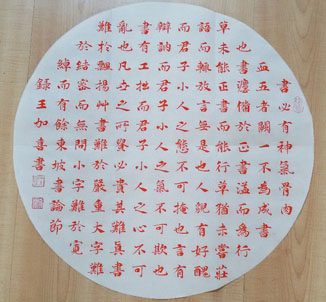 書必有神氣骨肉
血五者闕一不為成書
也書法備於正書溢而為行
草未能正書而能行草猶未嘗莊
語而輒放言無是也人貌有好醜
而君子小人之態不可掩也言有
辯訥而君子小人之氣不可欺也
書有工拙而君子小人之心不可
亂也凡世之所貴必貴其難真書
難於飄揚草書難於嚴重大字難
於結密而無間小字難於寬
綽而有餘東坡書論節
錄王加喜書